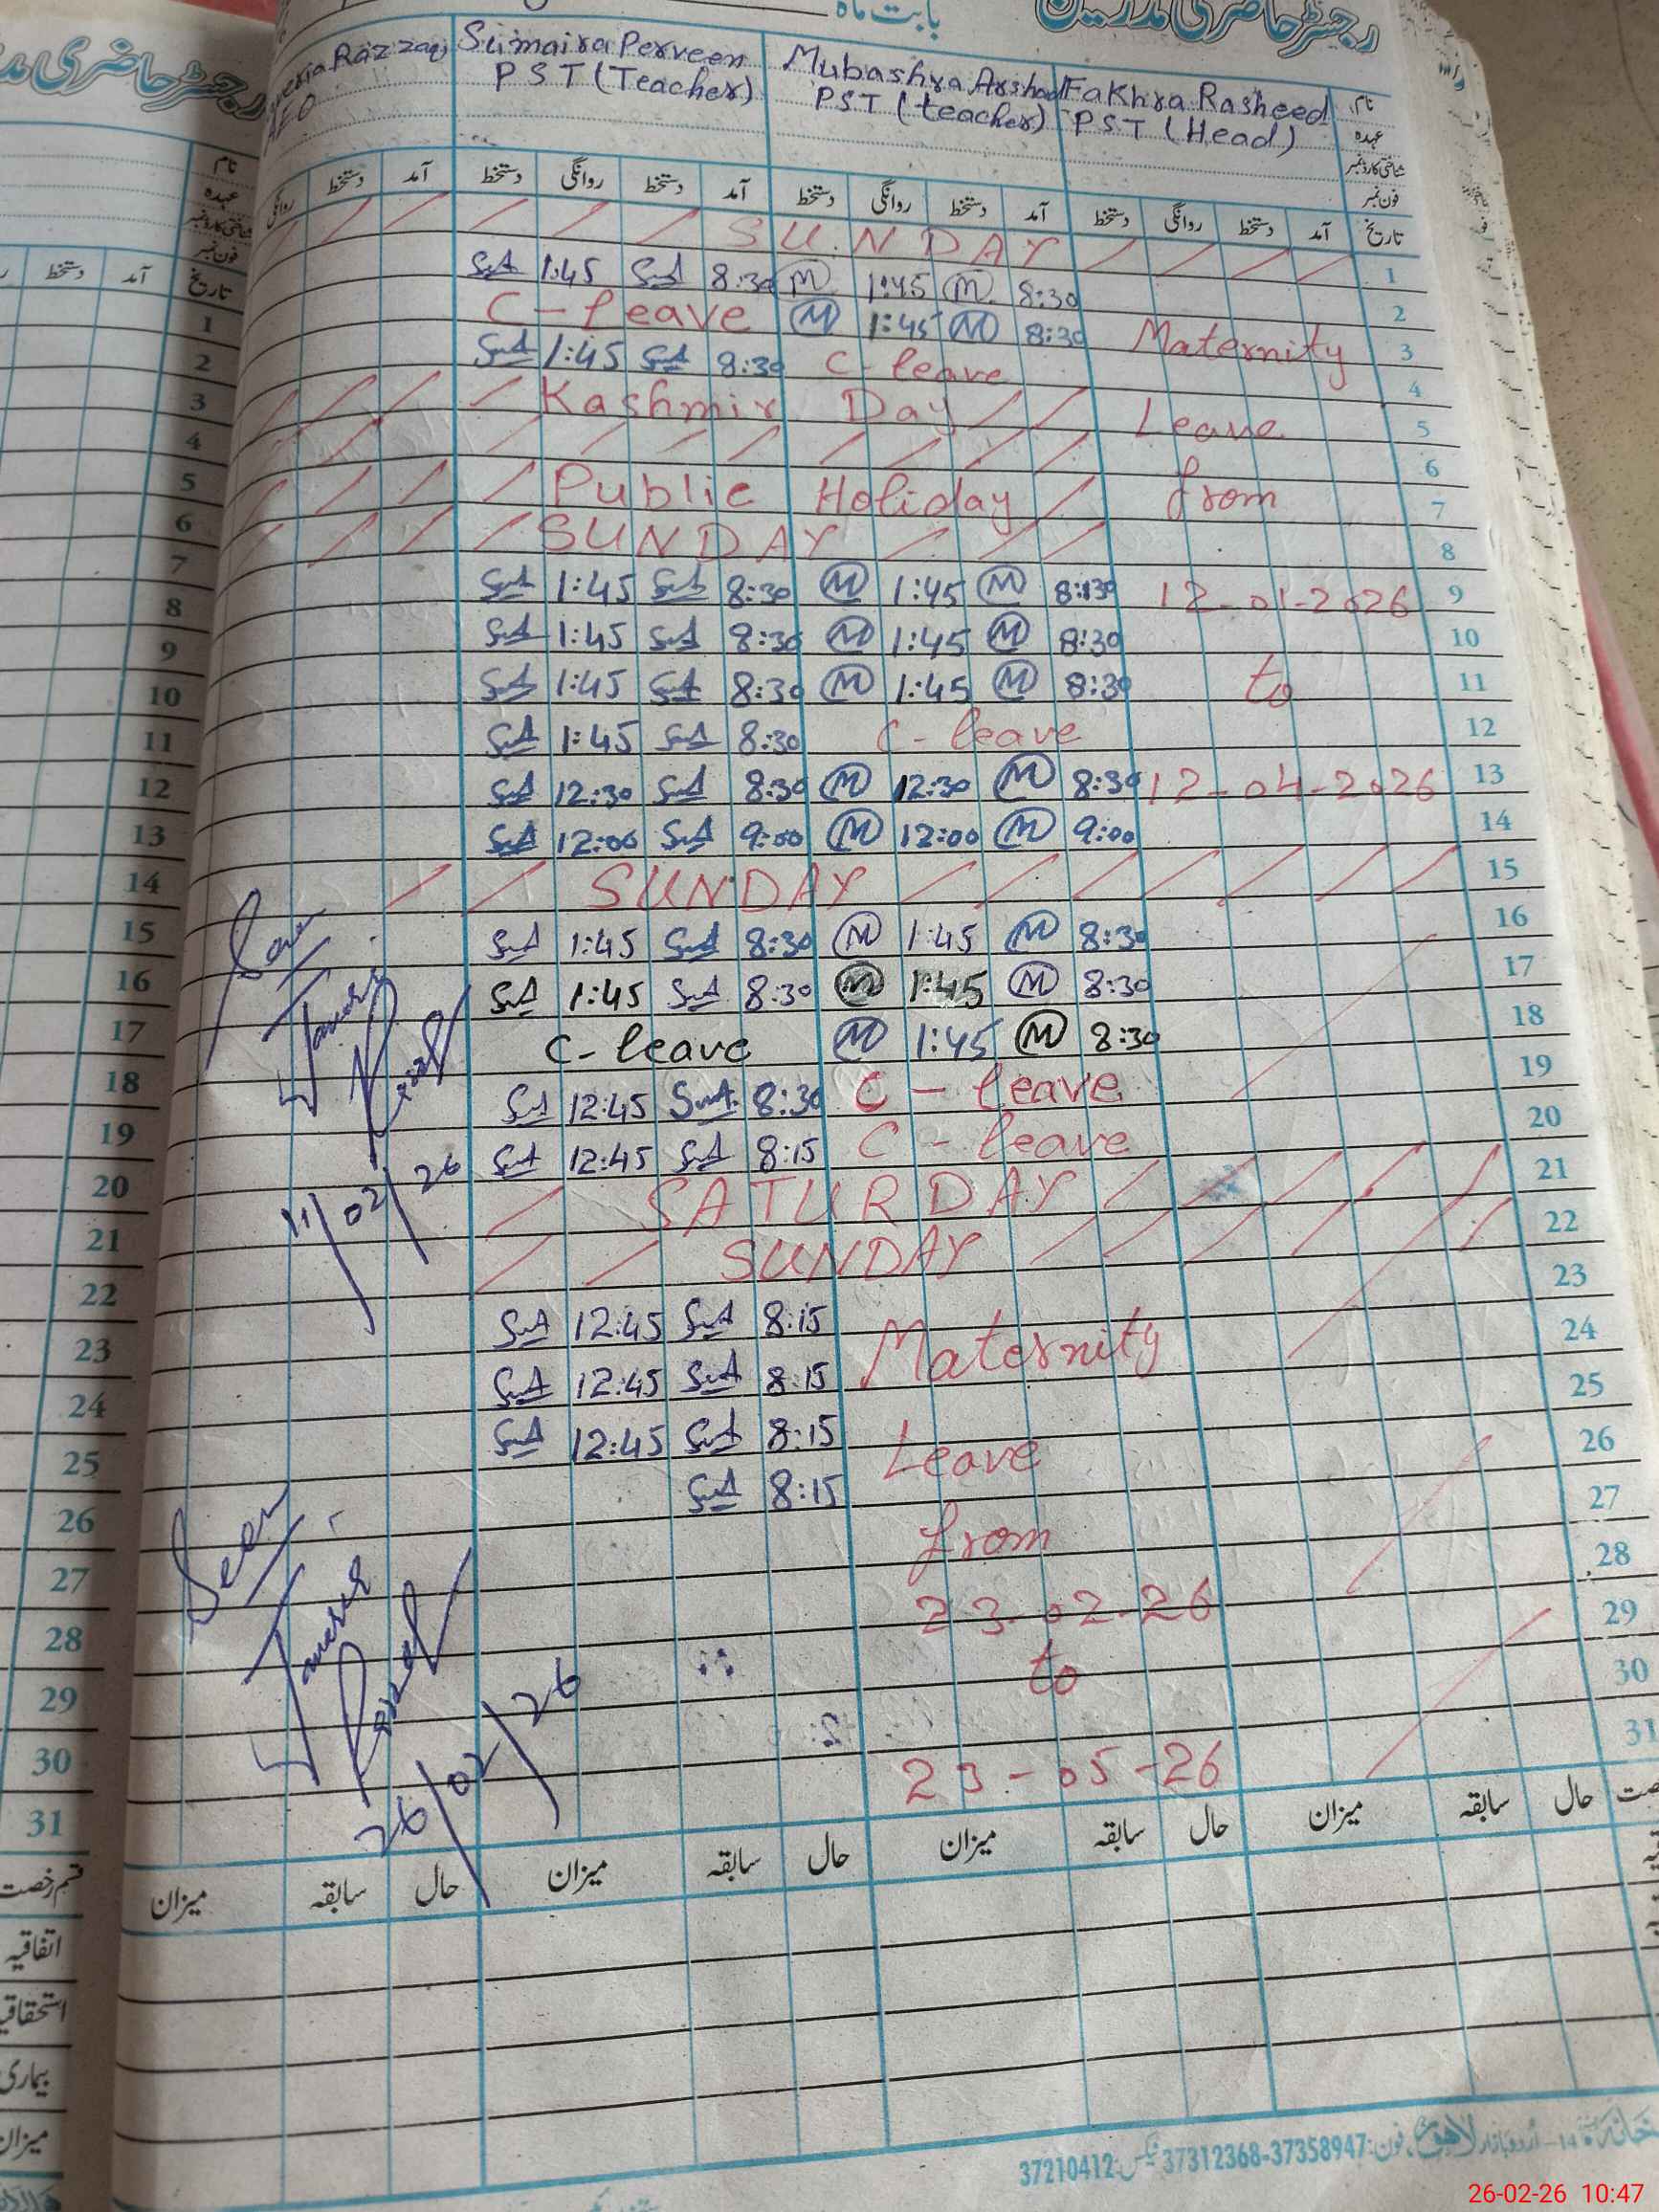 رجسٹر حاضری مدرسین
بابت ماہ
Razzaq Sumaira Perveen Mubashra Arshad Fakhra Rasheed نام
AEO PST (Teacher) PST (teacher) PST (Head) عہدہ
شناختی کارڈ نمبر
فون نمبر
روانگی دستخط آمد دستخط روانگی دستخط آمد دستخط روانگی دستخط آمد دستخط روانگی دستخط آمد تاریخ
SUNDAY 1
1:45 8:30 M 1:45 M 8:30 2
C-leave M 1:45 M 8:30 Maternity 3
1:45 8:30 C-leave 4
Kashmir Day Leave 5
6
Public Holiday from 7
SUNDAY 8
1:45 8:30 M 1:45 M 8:30 12-01-2026 9
1:45 8:30 M 1:45 M 8:30 10
1:45 8:30 M 1:45 M 8:30 to 11
1:45 8:30 C-leave 12
12:30 8:30 M 12:30 M 8:30 12-04-2026 13
12:00 9:00 M 12:00 M 9:00 14
SUNDAY 15
1:45 8:30 M 1:45 M 8:30 16
1:45 8:30 M 1:45 M 8:30 17
C-leave M 1:45 M 8:30 18
12:45 8:30 C-leave 19
12:45 8:15 C-leave 20
11/02/26
SATURDAY 21
SUNDAY 22
12:45 8:15 23
12:45 8:15 Maternity 24
12:45 8:15 25
8:15 Leave 26
Seen
from 27
23-02-26 28
to 29
30
23-05-26 31
26/02/26
میزان سابقہ حال میزان سابقہ حال میزان سابقہ حال میزان سابقہ حال
رجسٹر حاضری مد
نام
عہدہ
شناختی کارڈ نمبر
فون نمبر
دستخط آمد تاریخ
1
2
3
4
5
6
7
8
9
10
11
12
13
14
15
16
17
18
19
20
21
22
23
24
25
26
27
28
29
30
31
قسم رخصت
اتفاقیہ
استحقاقیہ
بیماری
میزان
14-اردو بازار لاہور، فون: 37358947-37312368 فیکس: 37210412
26-02-26 10:47